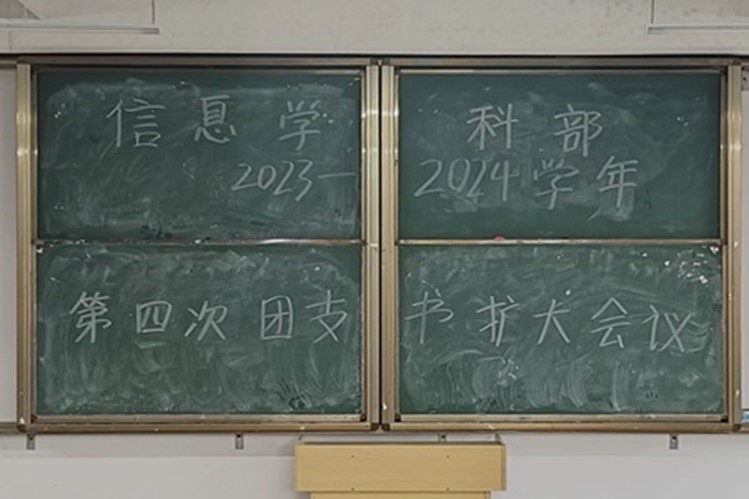 信息学科部
2023-2024学年
第四次团支书扩大会议